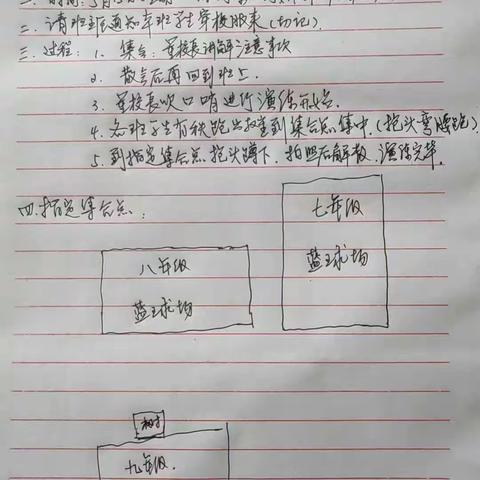 二. 请班主任通知本班学生穿校服来(切记).
三. 过程: 1. 集合. 罗校长讲解注意事项
2. 散会后再回到班上.
3. 罗校长吹口哨进行演练开始.
4. 各班学生有秩序跑到集合点集中.(抱头弯腰跑)
5. 到指定集合点抱头蹲下, 拍照后解散. 演练完毕.
四. 指定集合点:
七年级
篮球场
八年级
篮球场
树
九年级.